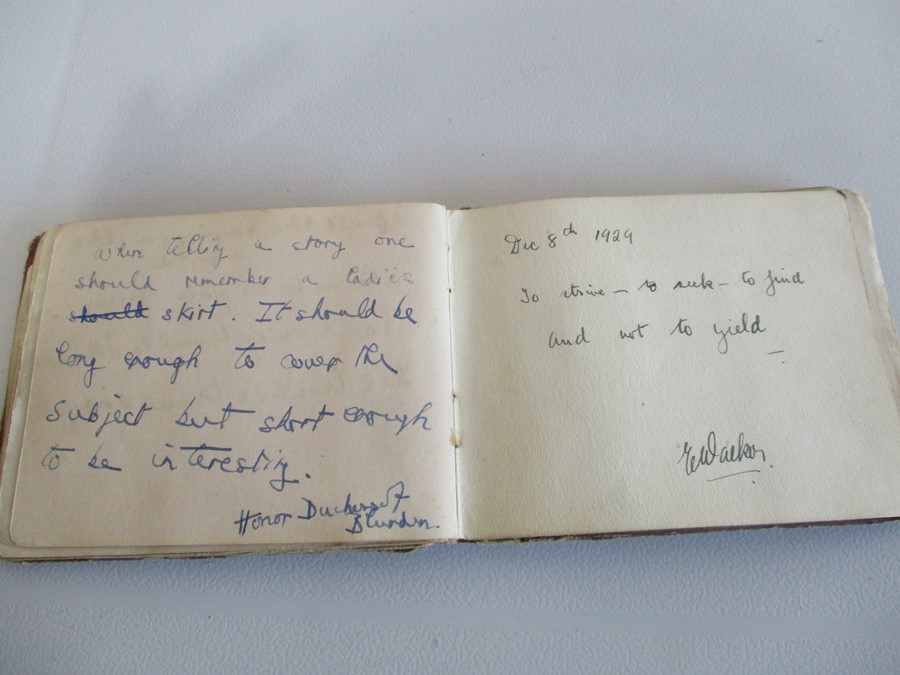 When telling a story one
should remember a ladies
should skirt. It should be
long enough to cover the
subject but short enough
to be interesting.
Honor Duchess of
Blunden.
Dec 8th 1929
To strive – to seek – to find
and not to yield